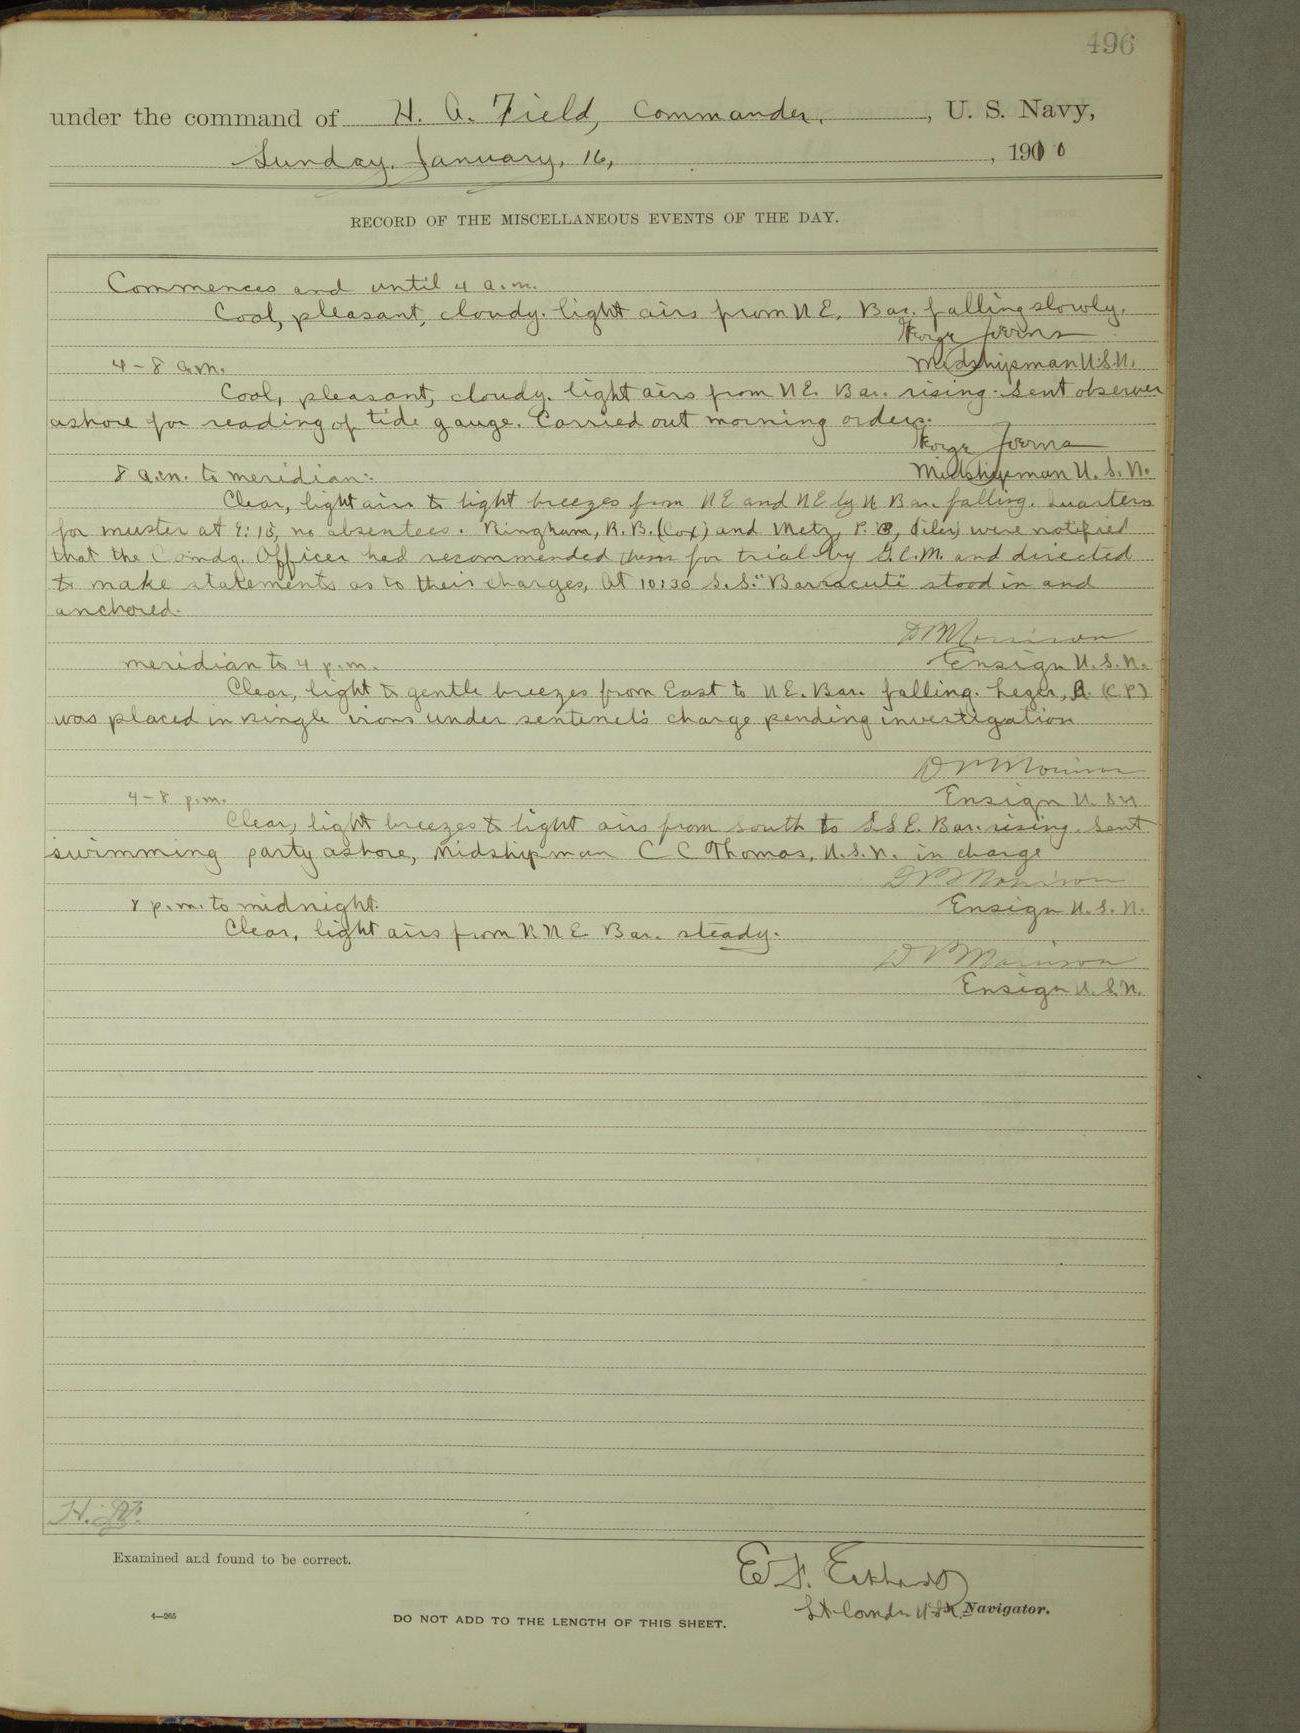 496
under the command of H. A. Field, Commander, , U. S. Navy,
Sunday, January, 16, , 1910
RECORD OF THE MISCELLANEOUS EVENTS OF THE DAY.
Commences and until 4 a.m.
Cool, pleasant, cloudy. light airs from N E. Bar. falling slowly.
George Joerns
4 - 8 a.m.
Midshipman U.S.N.
Cool, pleasant, cloudy. light airs from N E. Bar. rising. Sent observer
ashore for reading of tide gauge. Carried out morning orders.
George Joerns
8 a.m. to meridian:
Midshipman U. S. N.
Clear, light airs to light breezes from N E and N E by N. Bar. falling. Quarters
for muster at 9:15, no absentees. Bingham, R. B. (Cox) and Metz, were notified
that the Comdg. Officer had recommended them for trial by G.C.M. and directed
to make statements as to their charges, At 10:30 S.S. "Barracuti" stood in and
anchored.
D P Morrison
meridian to 4 p.m.
Ensign U. S. N.
Clear, light to gentle breezes from East to N E. Bar. falling. Leger, A. (C P)
was placed in single irons under sentinel's charge pending investigation
D P Morrison
4 - 8 p.m.
Ensign U S N
Clear, light breezes to light airs from South to S S E. Bar. rising. Sent
swimming party ashore, Midshipman C C Thomas, U.S.N. in charge
D P Morrison
8 p.m. to midnight.
Ensign U. S. N.
Clear, light airs from N N E Bar. steady.
D P Morrison
Ensign U. S. N.
Examined and found to be correct.
E. F. Eckhardt
Lt Comdr U.S.N. Navigator.
4—265
DO NOT ADD TO THE LENGTH OF THIS SHEET.